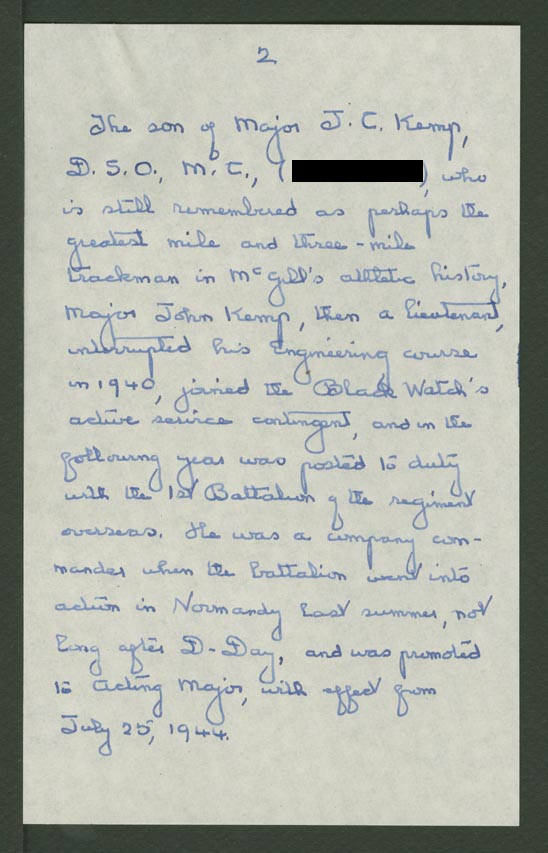 2
The son of Major J. C. Kemp,
D. S. O., M. C., ( ), who
is still remembered as perhaps the
greatest mile and three-mile
trackman in McGill's athletic history,
Major John Kemp, then a lieutenant,
interrupted his Engineering course
in 1940, joined the Black Watch's
active service contingent, and in the
following year was posted to duty
with the 1st Battalion of the regiment
overseas. He was a company com-
mander when the battalion went into
action in Normandy last summer, not
long after D-Day, and was promoted
to Acting Major, with effect from
July 25, 1944.